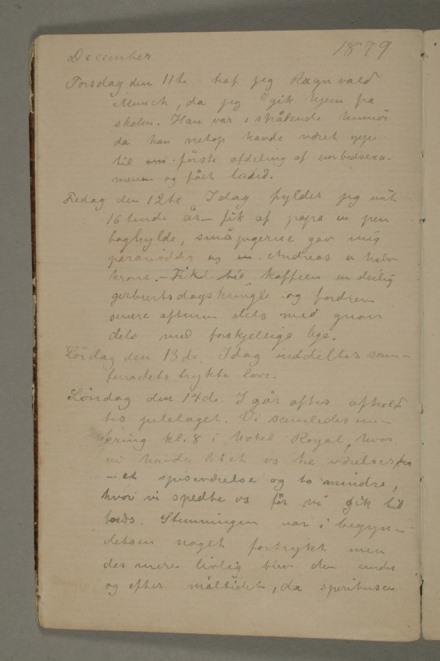 December 1879
Torsdag den 11te traf jeg Ragnvald
Munch, da jeg gik hjem fra
skolen. Han var i strålende humør
da han netop havde været oppe
til første afdeling af embedsexa-
menen og fået laud.
Fredag den 12te Idag fylder jeg mit
16tende år - fik af papa en pen
boghylde, småpigerne gav mig
og Andreas en halv
krone. - Fik til kaffeen en deilig
geburtsdagskringle og fordrev
senere aftenen dels med
dels med forskjellige lege.
Lördag den 13de. Idag uddeltes sam-
fundets trykte love.
Söndag den 14de. I går aftes afhold-
tes julelaget. Vi samledes
kring kl. 8 i Hotel Royal, hvor
vi havde os tre værelser
- et spiseværelse og to mindre,
hvori vi spredte os før vi gik til
bords. Stemningen var i begyn-
delsen noget fortrykt men
des mere livlig blev den under
og efter måltidet, da